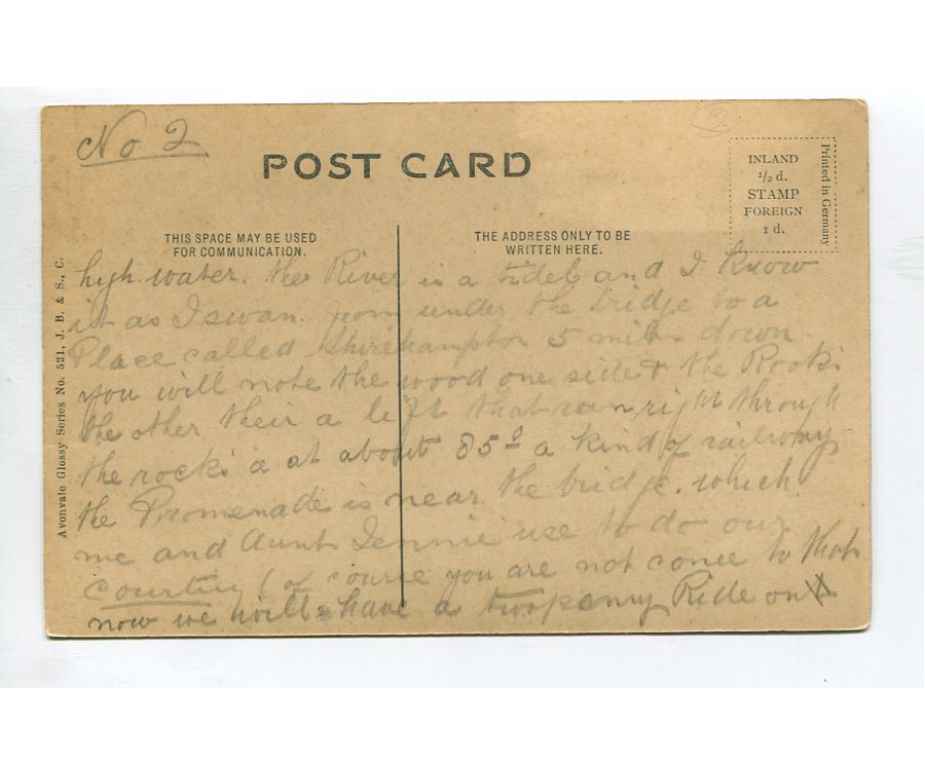 No 2
POST CARD
INLAND
½ d.
STAMP
FOREIGN
1 d.
Printed in Germany
THIS SPACE MAY BE USED
FOR COMMUNICATION.
THE ADDRESS ONLY TO BE
WRITTEN HERE.
Avonvale Glossy Series No. 531, J. B. & S., C.
high water. the River is a tidel and I know
it as I swam from under the bridge to a
Place called Shirehampton 5 miles down
you will note the wood one side & the Rocks
the other their a left that run right through
the rocks a at about 85° a kind of railway
the Promenade is near the bridge. which
me and Aunt Jennie use to do our
courting (of course you are not come to that
now we will have a twopenny Ride on